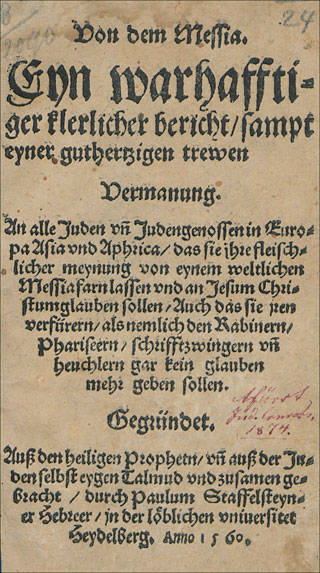 24
Von dem Messia.
Eyn warhaffti-
ger klerlicher bericht/ sampt
eyner guthertzigen trewen
Vermanung.
An alle Juden vñ Judengenossen in Euro-
pa Asia vnd Aphrica/ das sie jhre fleisch-
licher meynung von eynem weltlichen
Messia farn lassen vnd an Jesum Chri-
stum glauben sollen/ Auch das sie jren
verfürern/ als nemlich den Rabinern/
Phariseern/ schrifftzwingern vñ
heuchlern gar kein glauben
mehr geben sollen.
Gegründet.
1874.
Auß den heiligen Prophetn/ vñ auß der Jü-
den selbst eygen Talmud vnd zusamen ge-
bracht/ durch Paulum Staffelsteyn-
er Hebreer/ jn der löblichen vniuersitet
Heydelberg. Anno 1560.